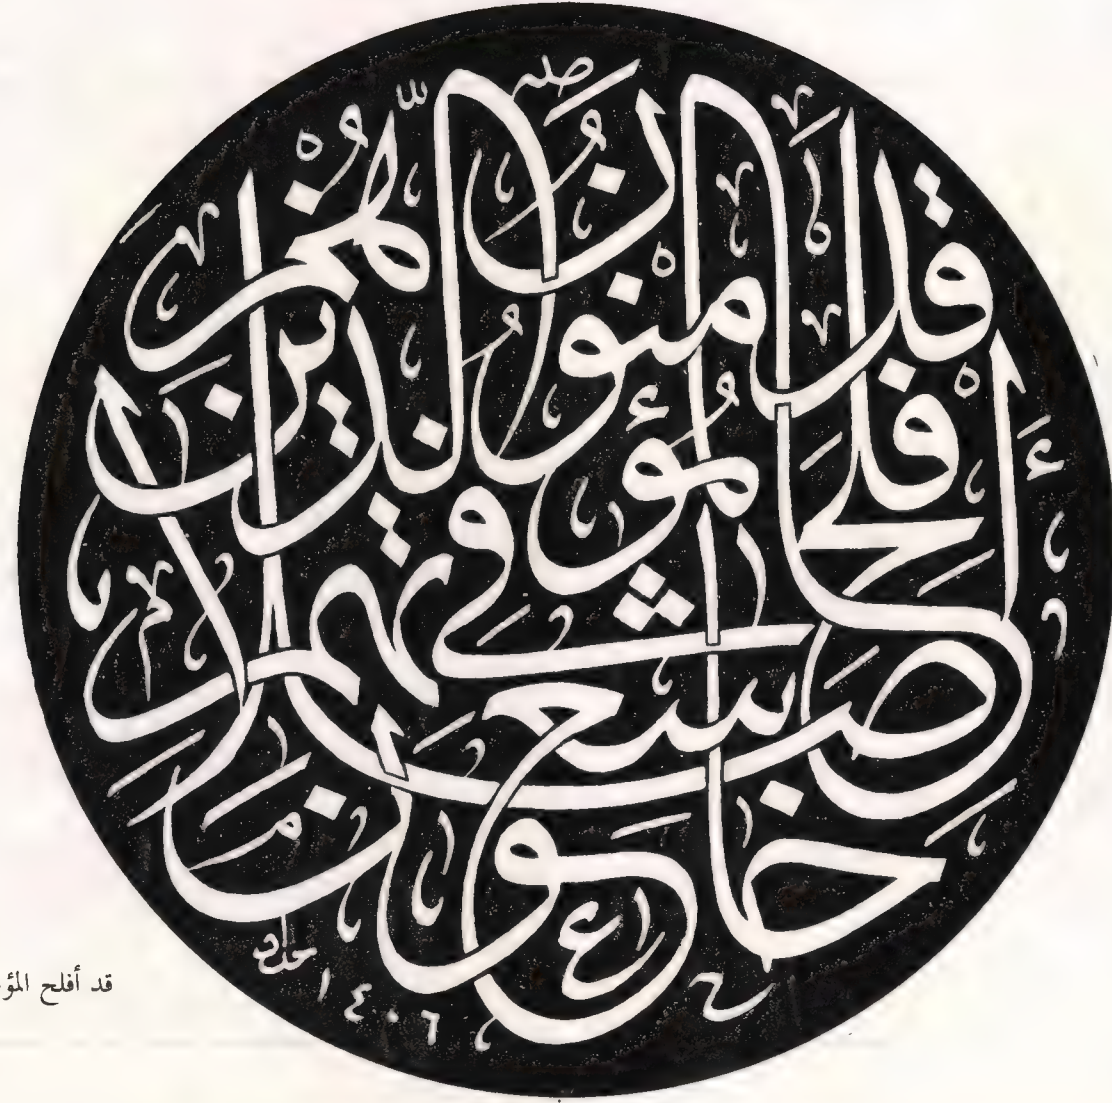 قد أفلح المؤمنون الذين هم في صلاتهم خاشعون
حداد
١٤٠٦
قد أفلح